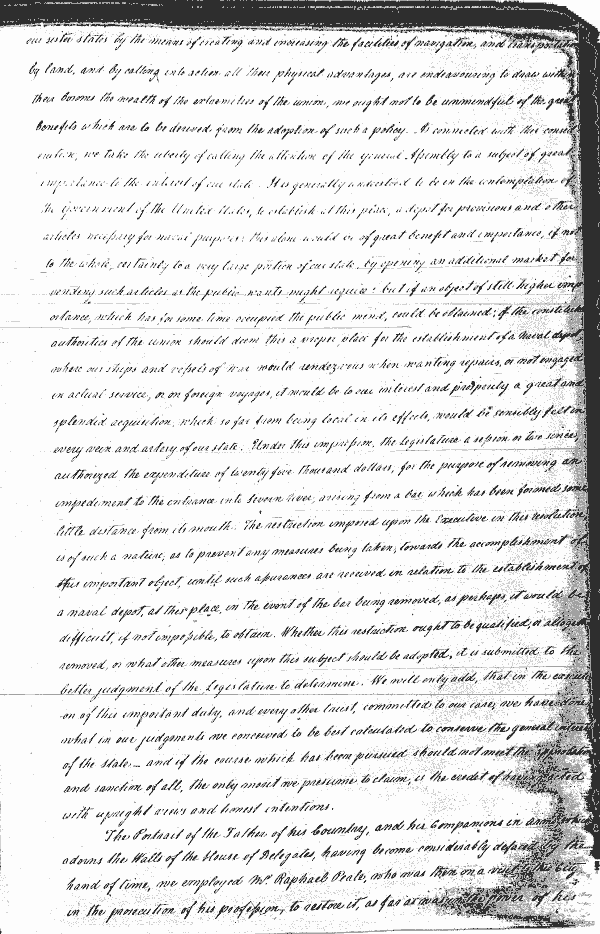 our sister states by the means of creating and increasing the facilities of navigation, and transportation
by land, and by calling into action all their physical advantages, are endeavouring to draw within
their bosoms the wealth of the extremities of the union, we ought not to be unmindful of the great
benefits which are to be derived from the adoption of such a policy. As connected with this consid
eration, we take the liberty of calling the attention of the general Assembly to a subject of great
importance to the interest of our state. It is generally understood to be in the contemplation of
the Government of the United States, to establish at this place, a depot for provisions and other
articles necessary for naval purposes: this alone would be of great benefit and importance, if not
to the whole, certainly to a very large portion of our state by opening an additional market for
vending such articles as the public wants might require: but if an object of still higher imp
ortance, which has for some time occupied the public mind, could be obtained; if the constituted
authorities of the union should deem this a proper place for the establishment of a naval depot
where our ships and vessels of war would rendezvous when wanting repairs, or not engaged
in actual service, or on foreign voyages, it would be to our interest and prosperity a great and
splendid acquisition, which so far from being local in its effects, would be sensibly felt in
every vein and artery of our state. Under this impression, the Legislature a session or two since,
authorized the expenditure of twenty five thousand dollars, for the purpose of removing an
impediment to the entrance into Severn river, arising from a bar which has been formed some
little distance from its mouth. The restriction imposed upon the Executive in this resolution,
is of such a nature, as to prevent any measures being taken, towards the accomplishment of
this important object, until such assurances are received in relation to the establishment of
a naval depot, at this place, in the event of the bar being removed, as perhaps, it would be
difficult, if not impossible, to obtain. Whether this restriction ought to be qualified, or altogether
removed, or what other measures upon this subject should be adopted, it is submitted to the
better judgment of the Legislature to determine. We will only add, that in the execution
on of this important duty, and every other trust, committed to our care, we have done
what in our judgments we conceived to be best calculated to conserve the general interest
of the state — and if the course which has been pursued should not meet the approbation
and sanction of all, the only merit we presume to claim, is the credit of having acted
with upright views and honest intentions.
The Portrait of the Father of his Country, and his Companions in arms, which
adorns the Walls of the House of Delegates, having become considerably defaced by the
hand of time, we employed Mr. Raphael Peale, who was then on a visit to the City
in the prosecution of his profession, to restore it, as far as was in the power of his